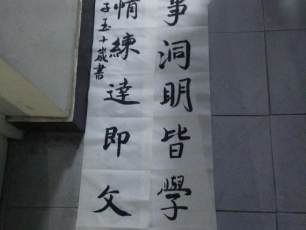 事洞明皆學
情練達即文
子玉十歲書